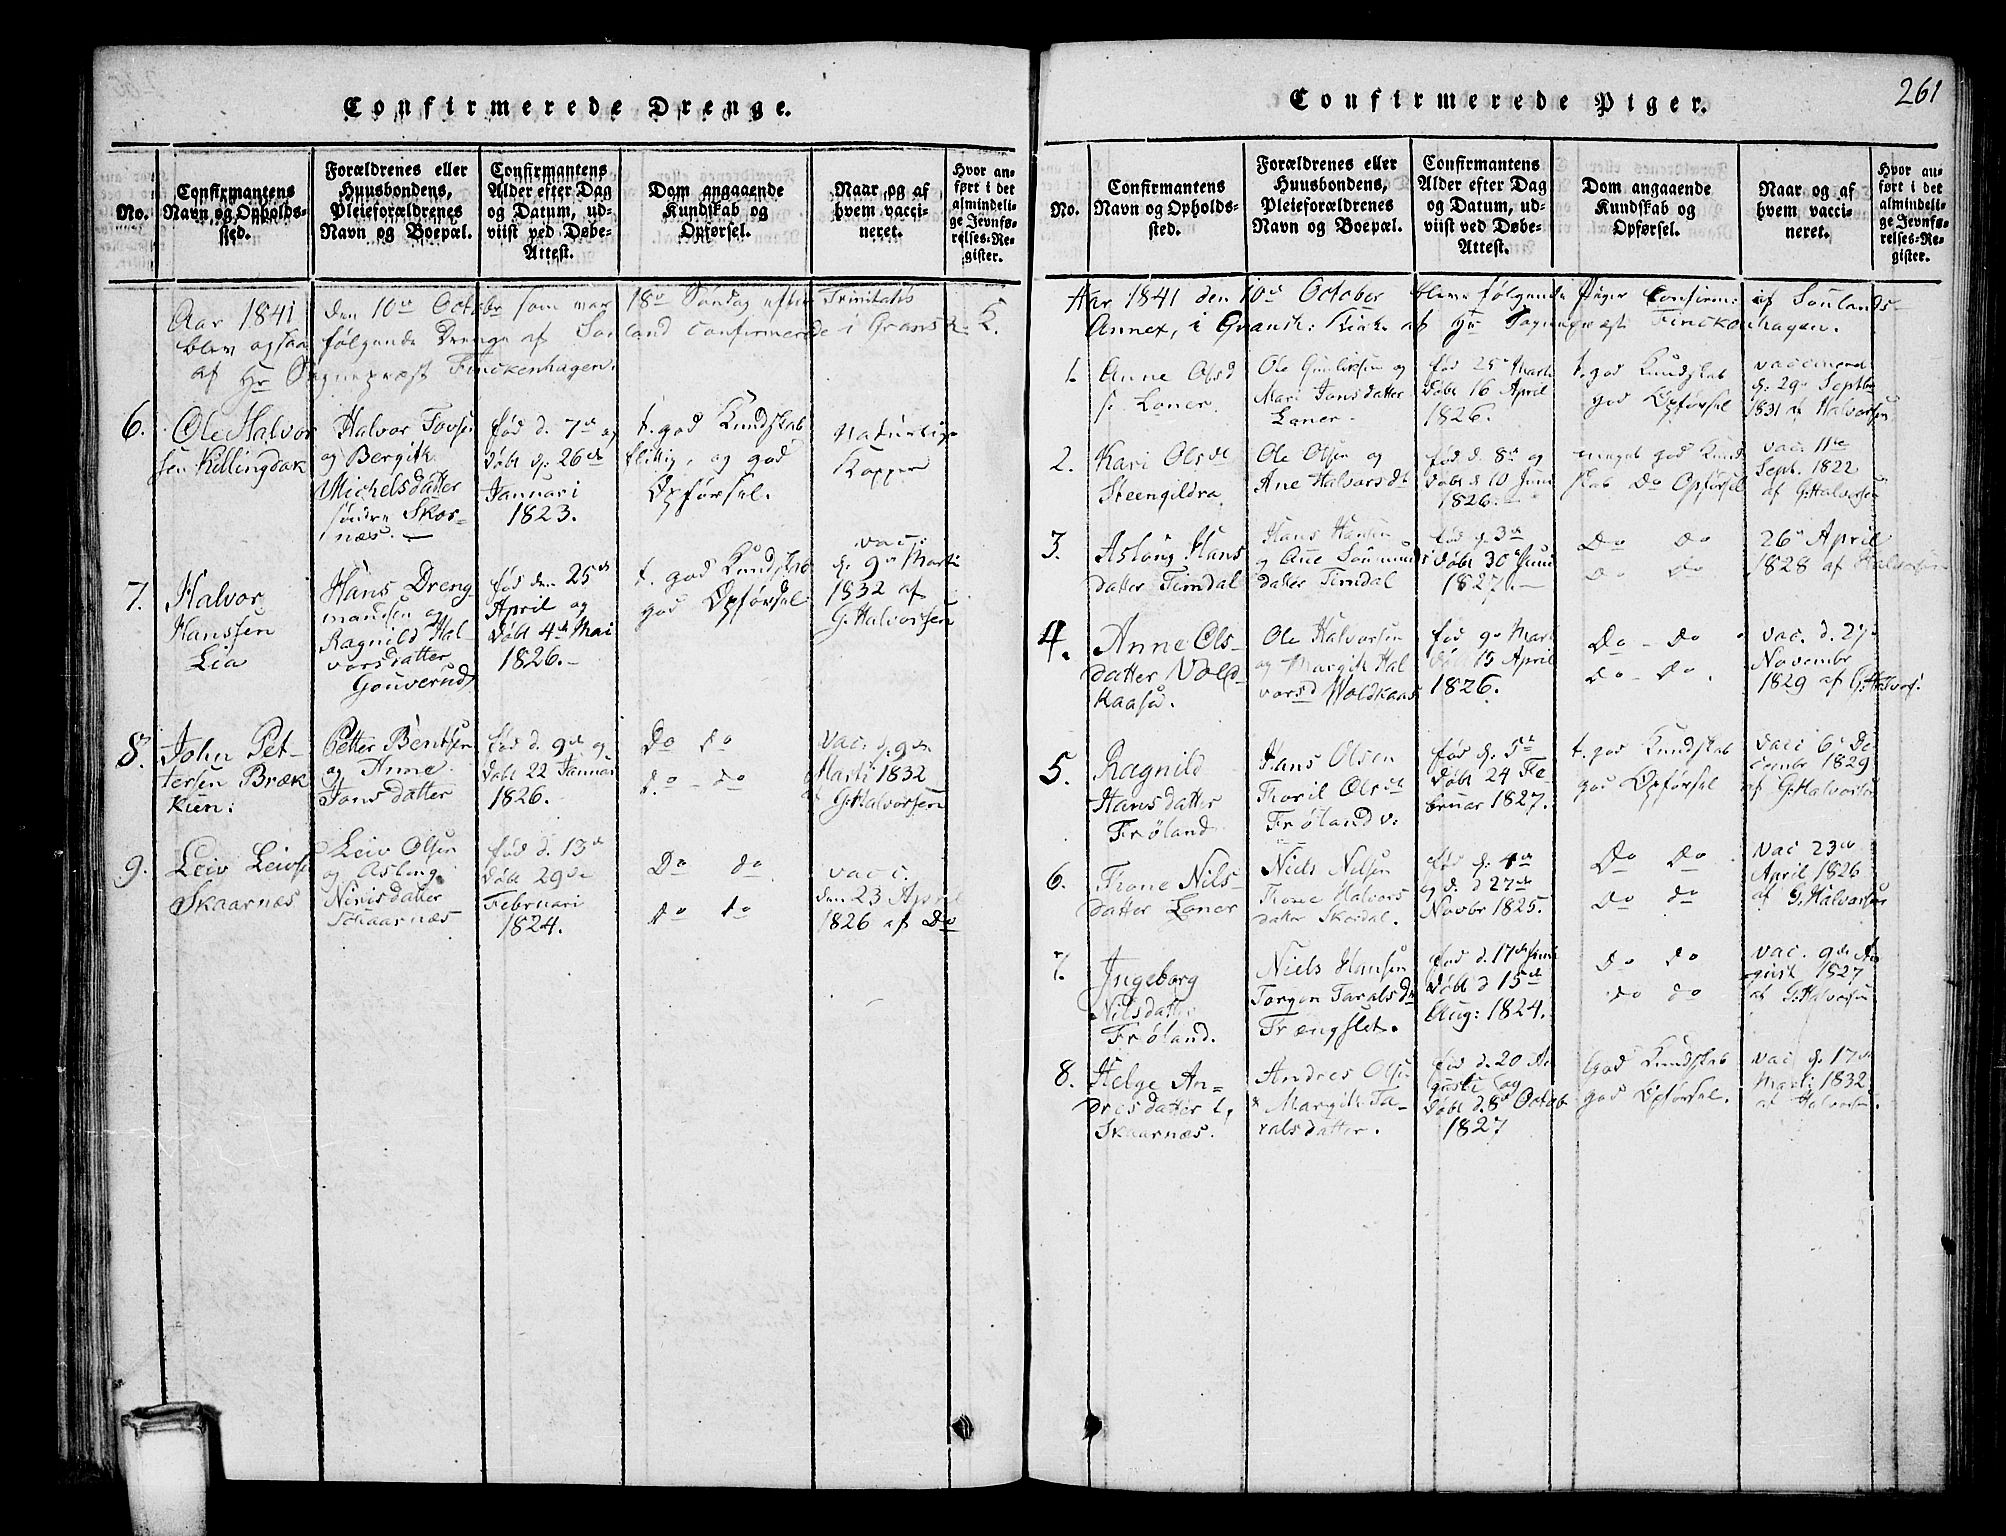 Confirmerede Drenge.
No.
Confirmantens
Navn og Opholds-
sted.
Forældrenes eller
Huusbondens,
Pleieforældrenes
Navn og Boepæl.
Confirmantens
Alder efter Dag
og Datum, ud-
viist ved Døbe-
Attest.
Dom angaaende
Kundskab og
Opførsel.
Naar og af
hvem vacci-
neret.
Hvor an-
ført i det
almindeli-
ge Jevnfø-
relses-Re-
gister.
Aar 1841 den 10de October som var 18de Søndag efter Trinitatis
blev ogsaa følgende Drenge af confirmerede i Gransh. K.
af Hr Sognepræst Finckenhagen.
6.
Ole Halvor
sen Killingdak
Halvor Tovsen
og Bergith
Michelsdatter
søndre Skor-
næs.
fød d. 7de og
døbt d. 26de
Januari
1823.
t. god Kundskab
flittig, og god
Opførsel.
Naturlige
Kopper
7.
Halvor
Hanssen
Lia
Hans Dreng
mansen og
Ragnild Hal-
vorsdatter
Gouverud
fød den 25de
April og
døbt 4de Mai
1826.
t. god Kundskab
god Opførsel
vac:
d. 9de Marti
1832 af
G: Halvorssen
8.
John Pet-
tersen Bræk
ken:
Petter Bentsen
og Anne
Jonsdatter
fød d. 9de og
døbt 22 Januar
1826.
Do do
do - do
vac: d. 9de
Marti 1832
af G: Halvorsen
9.
Leiv Leivse
Skaarnæs
Leiv Olsen
og Aslong
datter
Skaarnæs
fød d. 13de
døbt 29de
Februari
1824.
Do do
Do do
vac:
den 23 April
1826 af Do
Confirmerede Piger.
261
No.
Confirmantens
Navn og Opholds-
sted.
Forældrenes eller
Huusbondens,
Pleieforældrenes
Navn og Boepæl.
Confirmantens
Alder efter Dag
og Datum, ud-
viist ved Døbe-
Attest.
Dom angaaende
Kundskab og
Opførsel.
Naar og af
hvem vacci-
neret.
Hvor an-
ført i det
almindeli-
ge Jevnfø-
relses-Re-
gister.
Aar 1841 den 10de October bleve følgende Piger Confirm: af Soulands
Annex, i Gransh: Kirke af Hr Sognepræst Finckenhagen.
1.
Anne Olsd
Loner.
Ole Gunliksen og
Mari Jonsdatter
Loner
fød 25de Marti
døbt 16 April
1826.
t. god Kundskab
god Opførsel
vaccinered
d. 29de Septbr
1831 af Halvorsen
2.
Kari Olsdt
Steengildra
Ole Olsen og
Ane Halvorsdt
fød d. 8de og
døbt d 10 Juni
1826.
meget god Kund
skab Do Opførsel
vac: 11te
Sept. 1822
af G: Halvorsen
3.
Aslong Hans
datter Timdal
Hans Hansen
og Ane
datter Timdal
fød d. 3de
døbt 30de Juni
1827.
Do Do
Do Do
26de April
1828 af Halvorsen
4.
Anne Ols-
datter Vold-
kaasa.
Ole Halvorsen
og Margith Hal
vorsd Woldkaas
fød 9de Marti
døbt 15 April
1826.
Do - Do
Do - Do.
vac. d. 27de
Novembr
1829 af G: Halvors:
5.
Ragnild
Hansdatter
Frøland
Hans Olsen
Thoril Olsdt
Frøland v:
fød d. 5te
døbt 24 Fe-
bruar 1827.
t. god Kundskab
god Opførsel
vaci 6te De
cembr 1829
af G: Halvorsen
6.
Thone Nils-
datter Loner
Niels Nilsen
Thone Halvors
datter Skordal.
fød d: 4de
og d. d 27de
Novbr 1825.
Do Do
Do do
vac 23de
April 1826
af G: Halvorsen
7.
Ingeborg
Nilsdatter
Frøland.
Niels Hansen
Torgon Taralsdt
Frængslet.
fød d. 17de Juni
døbt d 15de
Aug: 1824.
Do Do
do do
vac. 9de Au
gust 1827
af G: Halvorsen
8.
Helge An-
dresdatter
Skaarnæs.
Andres Olsen
& Margith Ta-
ralsdatter.
fød d. 20 Au
gusti og
døbt d. 8de Octob
1827
God Kundskab
god Opførsel.
vac d: 17de
Marti 1832
af Halvorsen.